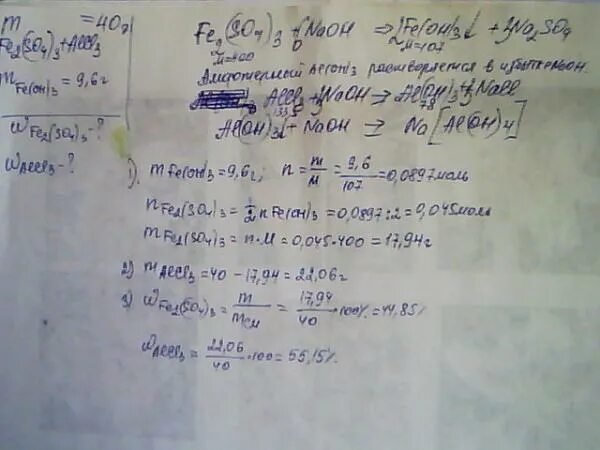 m = 40г
Fe2(SO4)3 + AlCl3
m Fe(OH)3 = 9,6г
ω Fe2(SO4)3 - ?
ω AlCl3 - ?
Fe2(SO4)3 + 6NaOH => 2Fe(OH)3↓ + 3Na2SO4
M=400 M=107
Амфотерный Al(OH)3 растворяется в избытке NaOH.
AlCl3 + 3NaOH => Al(OH)3 + 3NaCl
133,5 78
Al(OH)3↓ + NaOH => Na[Al(OH)4]
1). m Fe(OH)3 = 9,6г; n = m/M = 9,6/107 = 0,0897моль
n Fe2(SO4)3 = 1/2 n Fe(OH)3 = 0,0897:2 = 0,045моль
m Fe2(SO4)3 = n·M = 0,045·400 = 17,94г
2) m AlCl3 = 40 - 17,94 = 22,06г
3) ω Fe2(SO4)3 = m/mсм = 17,94/40 ·100% = 44,85%
ω AlCl3 = 22,06/40 ·100 = 55,15%.